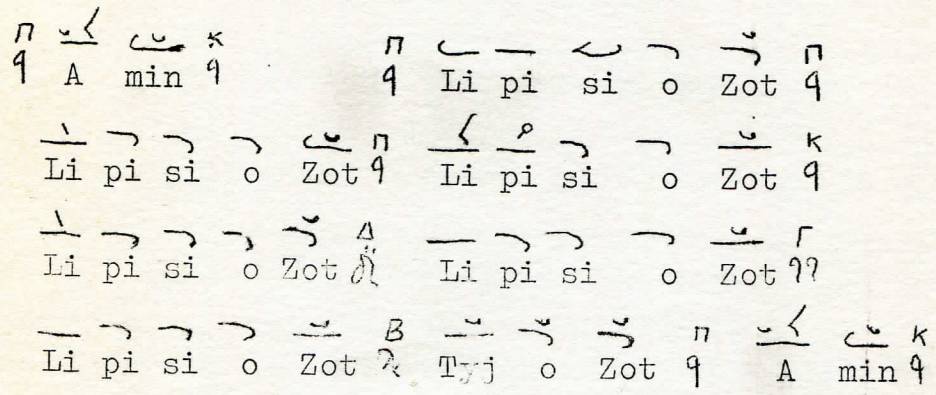 Π κ Π Π
A min Li pi si o Zot
Π κ
Li pi si o Zot Li pi si o Zot
Δ Γ
Li pi si o Zot Li pi si o Zot
Β Π κ
Li pi si o Zot Tyj o Zot A min